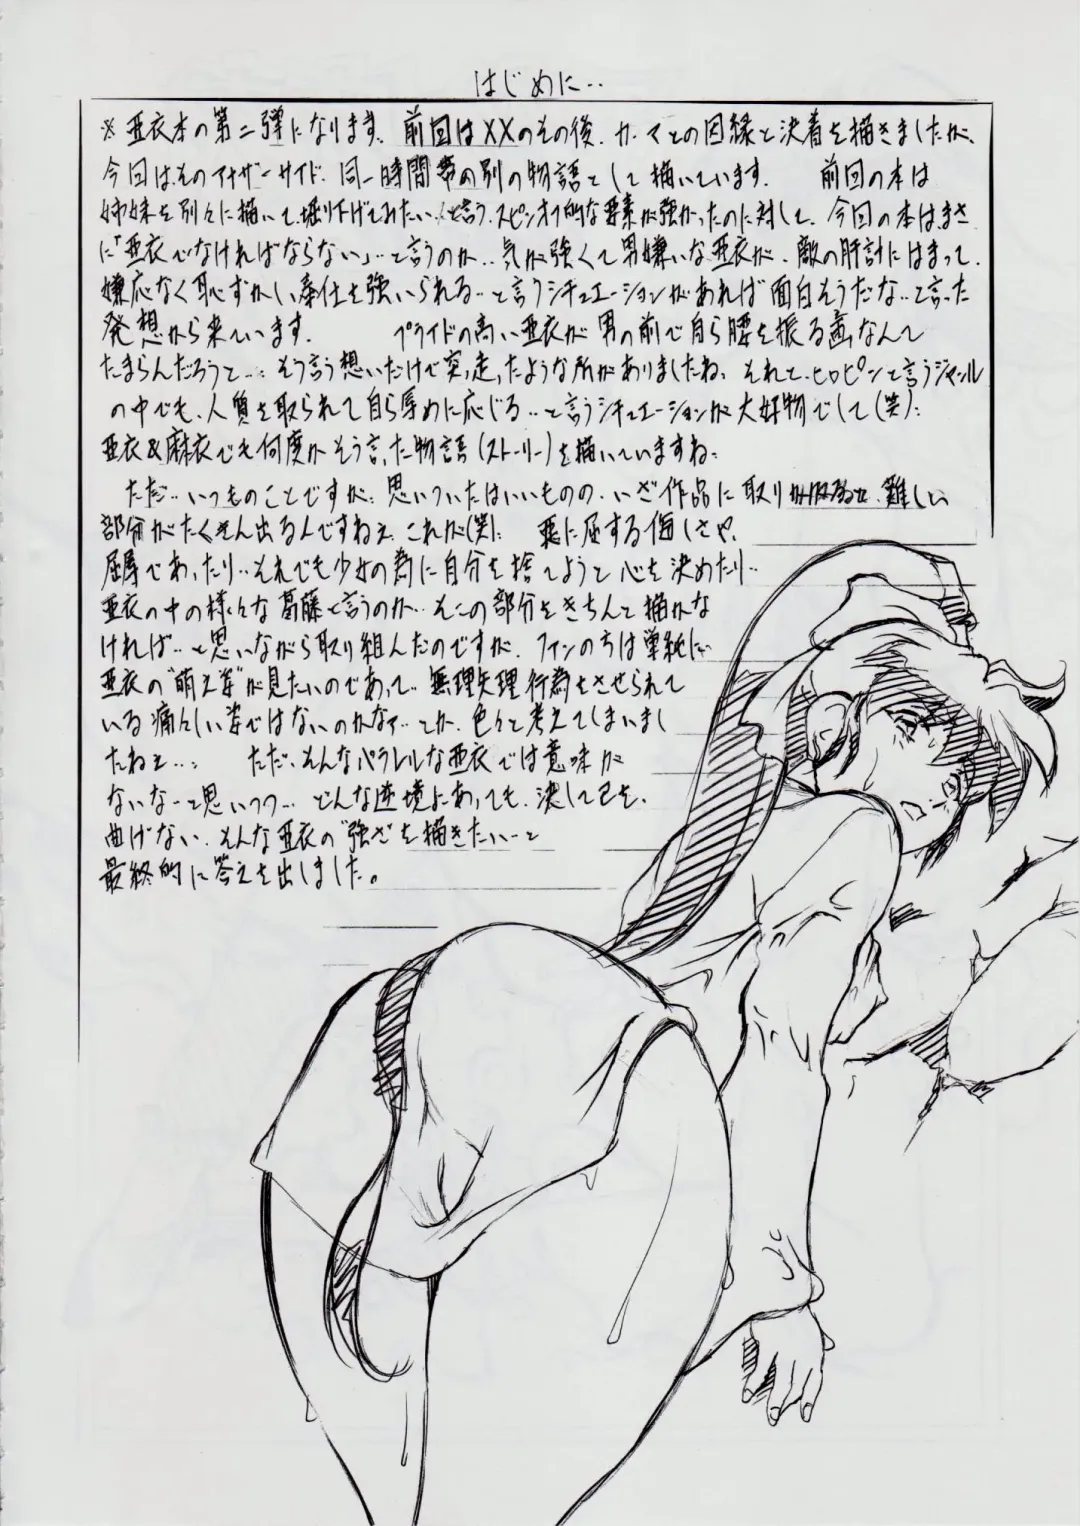 はじめに‥
※ 亜衣本の第二弾になります。 前回はXXのその後、カーマとの因縁と決着を描きましたが、
今回は、そのアナザーサイド、同一時間帯の別の物語として描いています。 前回の本は
姉妹を別々に描いて、掘り下げてみたい、と言う、スピンオフ的な要素が強かったのに対して、今回の本はまさ
に「亜衣でなければならない」‥と言うのか‥気が強くて男嫌いな亜衣が、敵の奸計にはまって、
嫌応なく恥ずかしい奉仕を強いられる‥と言うシチュエーションがあれば面白そうだな‥と言った
発想から来ています。 プライドの高い亜衣が男の前で自ら腰を振る画なんて
たまらんだろうと‥、そう言う想いだけで突っ走ったような所がありましたね、それと、ヒロピンと言うジャンル
の中でも、人質を取られて自ら辱めに応じる‥と言うシチュエーションが大好物でして(笑)、
亜衣&麻衣でも何度かそう言った物語(ストーリー)を描いていますね、
ただ‥いつものことですが、思いついたはいいものの、いざ作品に取り 難しい
部分がたくさん出るんですねぇ、これが(笑)、 悪に屈する悔しさや、
屈辱であったり‥それでも少女の為に自分を捨てようと心を決めたり‥
亜衣の中の様々な葛藤と言うのか‥そこの部分をきちんと描かな
ければ‥と思いながら取り組んだのですが、ファンの方は単純に
亜衣の“萌え姿”が見たいのであって、無理矢理行為をさせられて
いる痛々しい姿ではないのかなァ‥とか、色々と考えてしまいまし
たねぇ‥、 ただ、そんなパラレルな亜衣では意味が
ないな‥と思いつつ‥ どんな逆境にあっても、決して己を、
曲げない、そんな亜衣の“強さ”を描きたい‥と
最終的に答えを出しました。